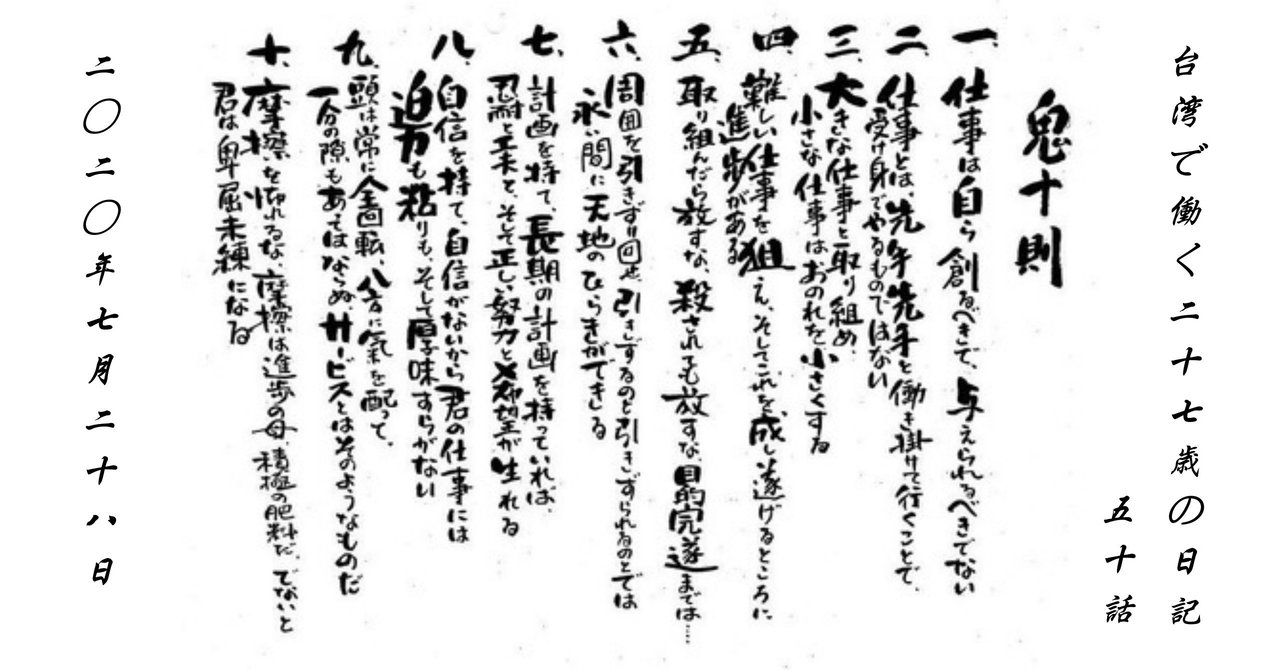 台湾で働く二十七歳の日記
五十話
鬼十則
一、仕事は自ら創るべきで、与えられるべきでない
二、仕事とは、先手先手と働き掛けて行くことで、
受け身でやるものではない
三、大きな仕事と取り組め、
小さな仕事はおのれを小さくする
四、難しい仕事を狙え、そしてこれを成し遂げるところに、
進歩がある
五、取り組んだら放すな、殺されても放すな、目的完遂までは……
六、周囲を引きずり回せ、引きずるのと引きずられるのとでは
永い間に天地のひらきができる
七、計画を持て、長期の計画を持っていれば、
忍耐と工夫と、そして正しい努力と希望が生れる
八、自信を持て、自信がないから君の仕事には
迫力も粘りも、そして厚味すらがない
九、頭は常に全回転、八方に気を配って、
一分の隙もあってはならぬ、サービスとはそのようなものだ
十、摩擦を怖れるな、摩擦は進歩の母、積極の肥料だ、でないと
君は卑屈未練になる
二〇二〇年七月二十八日